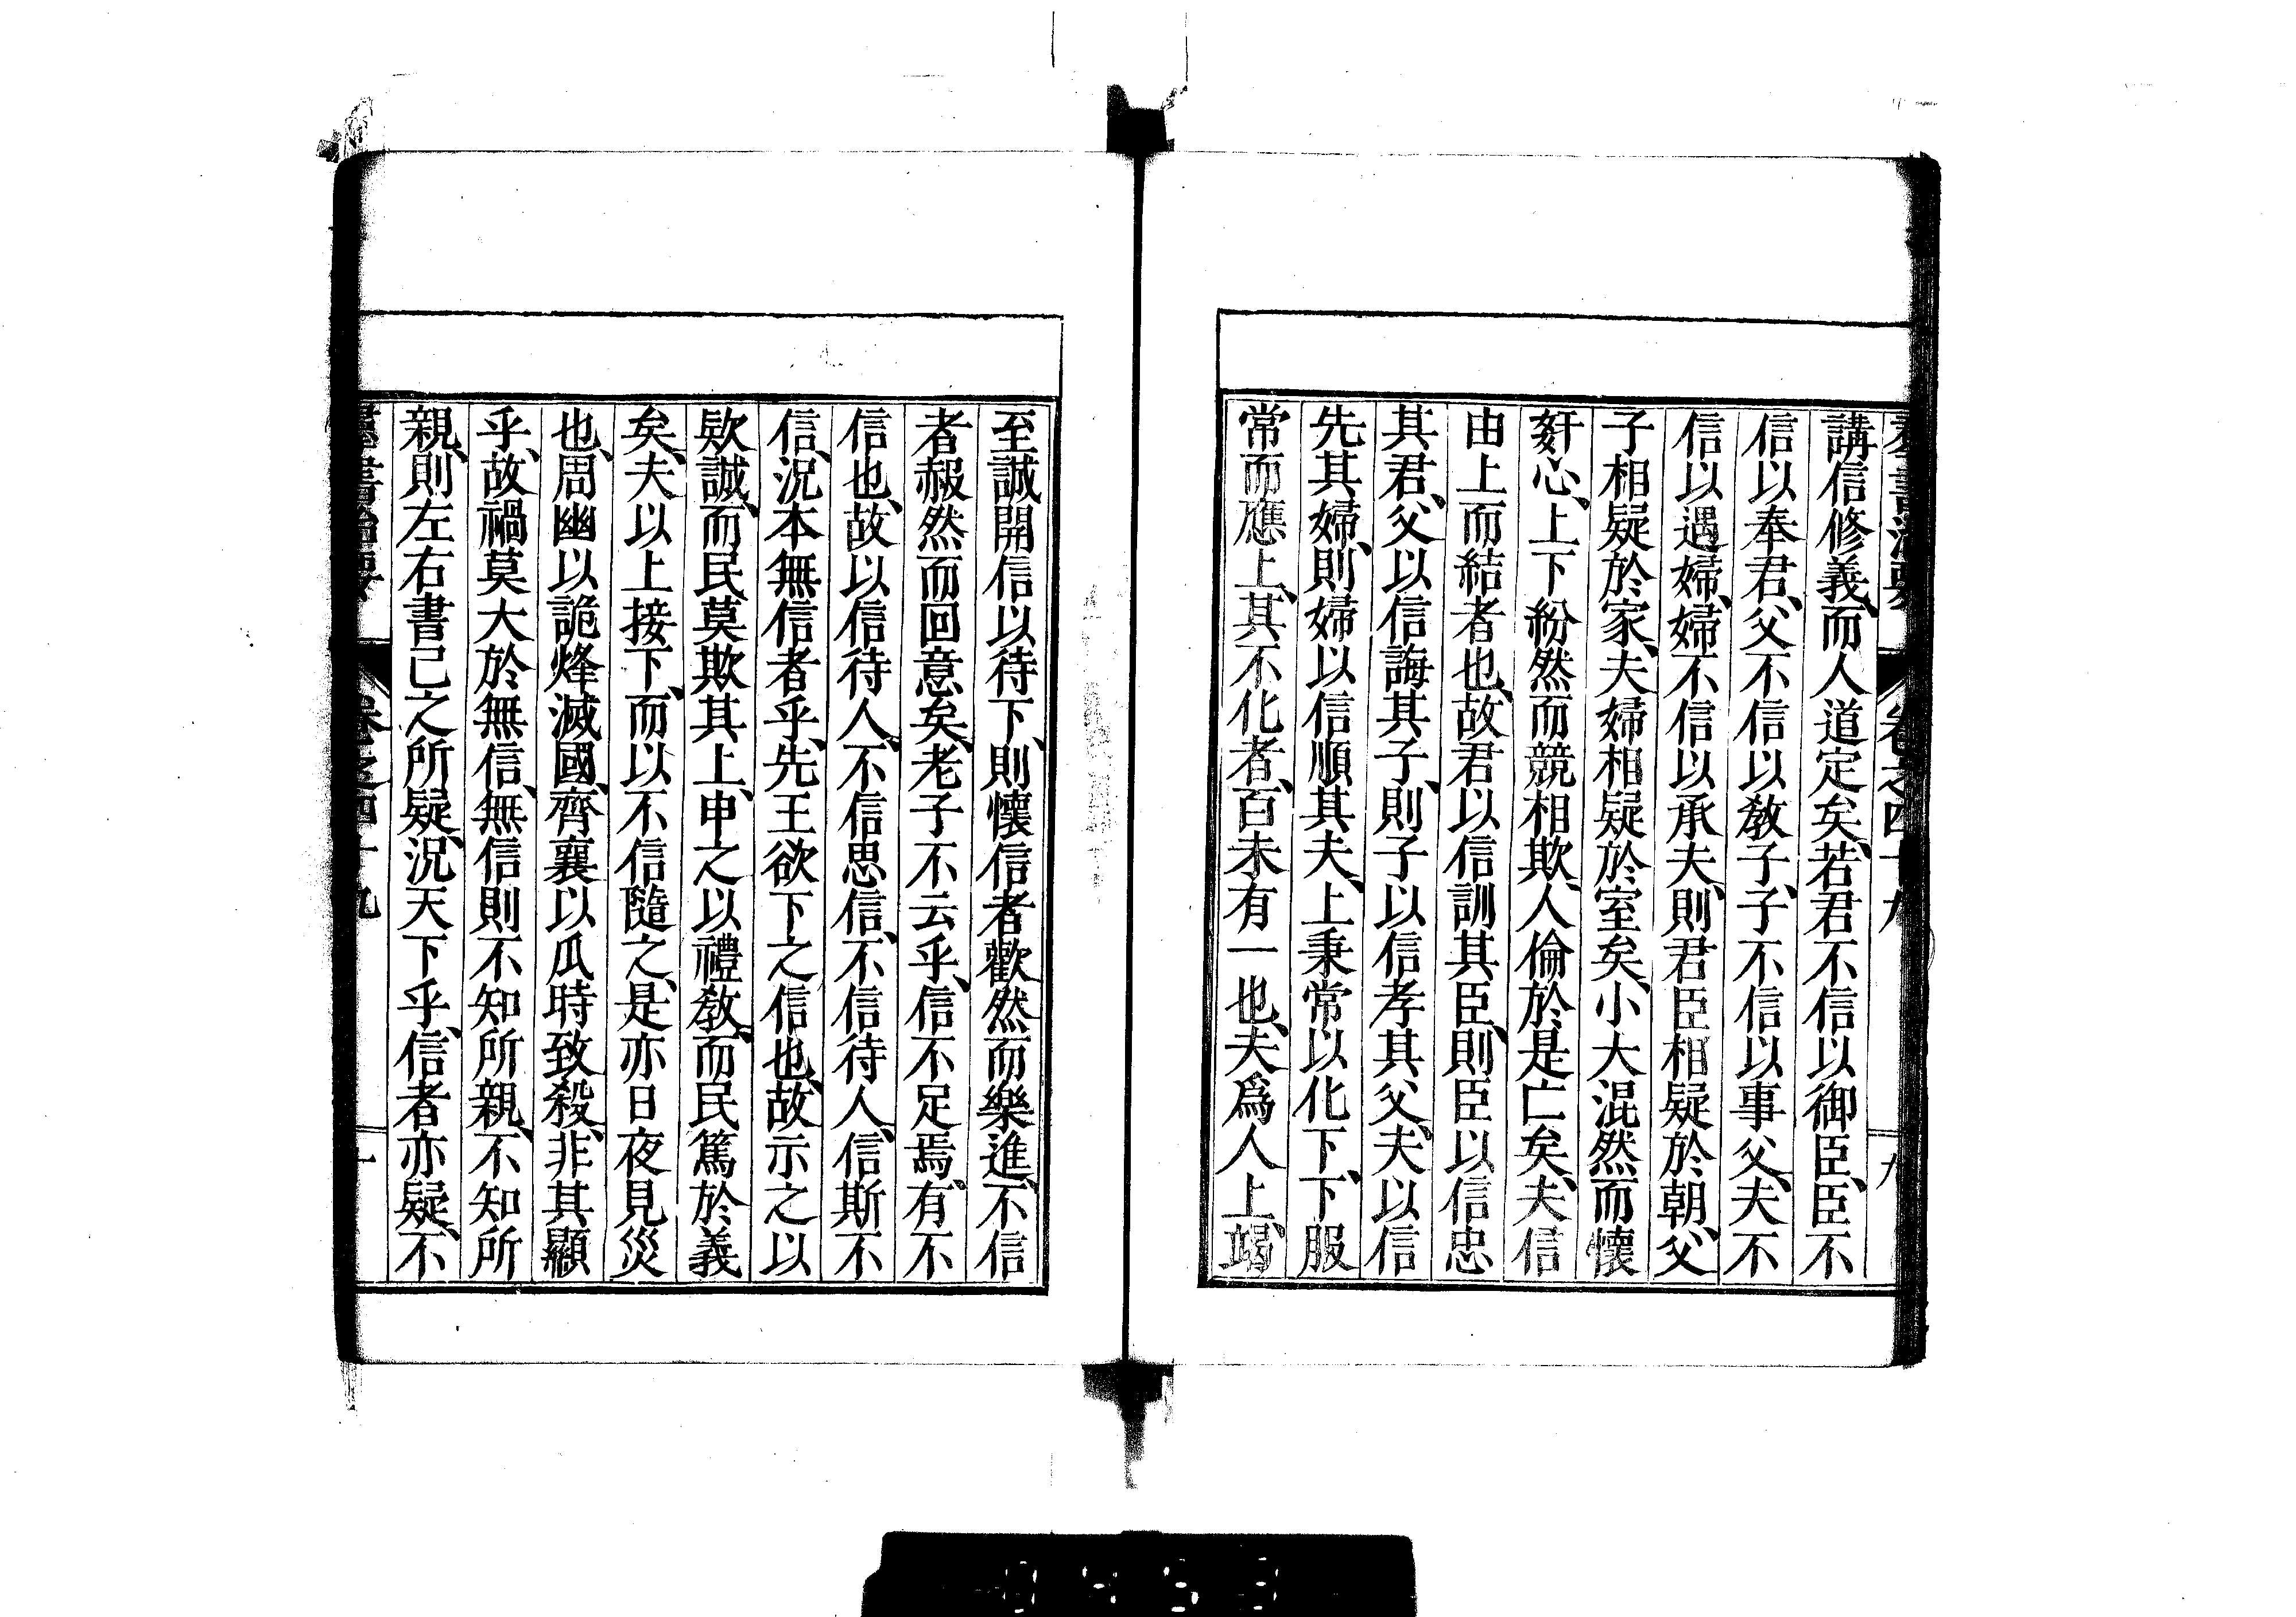 羣書治要 卷之四十九 九
講信修義、而人道定矣、若君不信以御臣、臣不
信以奉君、父不信以教子、子不信以事父、夫不
信以遇婦、婦不信以承夫、則君臣相疑於朝、父
子相疑於家、夫婦相疑於室矣、小大混然而懷
姧心、上下紛然而競相欺、人倫於是亡矣、夫信
由上而結者也、故君以信訓其臣、則臣以信忠
其君、父以信誨其子、則子以信孝其父、夫以信
先其婦、則婦以信順其夫、上秉常以化下、下服
常而應上、其不化者、百未有一也、夫爲人上、竭
至誠開信以待下、則懷信者歡然而樂進、不信
者赧然而回意矣、老子不云乎、信不足焉、有不
信也、故以信待人、不信思信、不信待人、信斯不
信、況本無信者乎、先王欲下之信也、故示之以
欵誠、而民莫欺其上、申之以禮教、而民篤於義
矣、夫以上接下、而以不信隨之、是亦日夜見災
也、周幽以詭烽滅國、齊襄以瓜時致殺、非其顯
乎、故禍莫大於無信、無信則不知所親、不知所
親、則左右書己之所疑、況天下乎、信者亦疑、不
羣書治要 卷之四十九